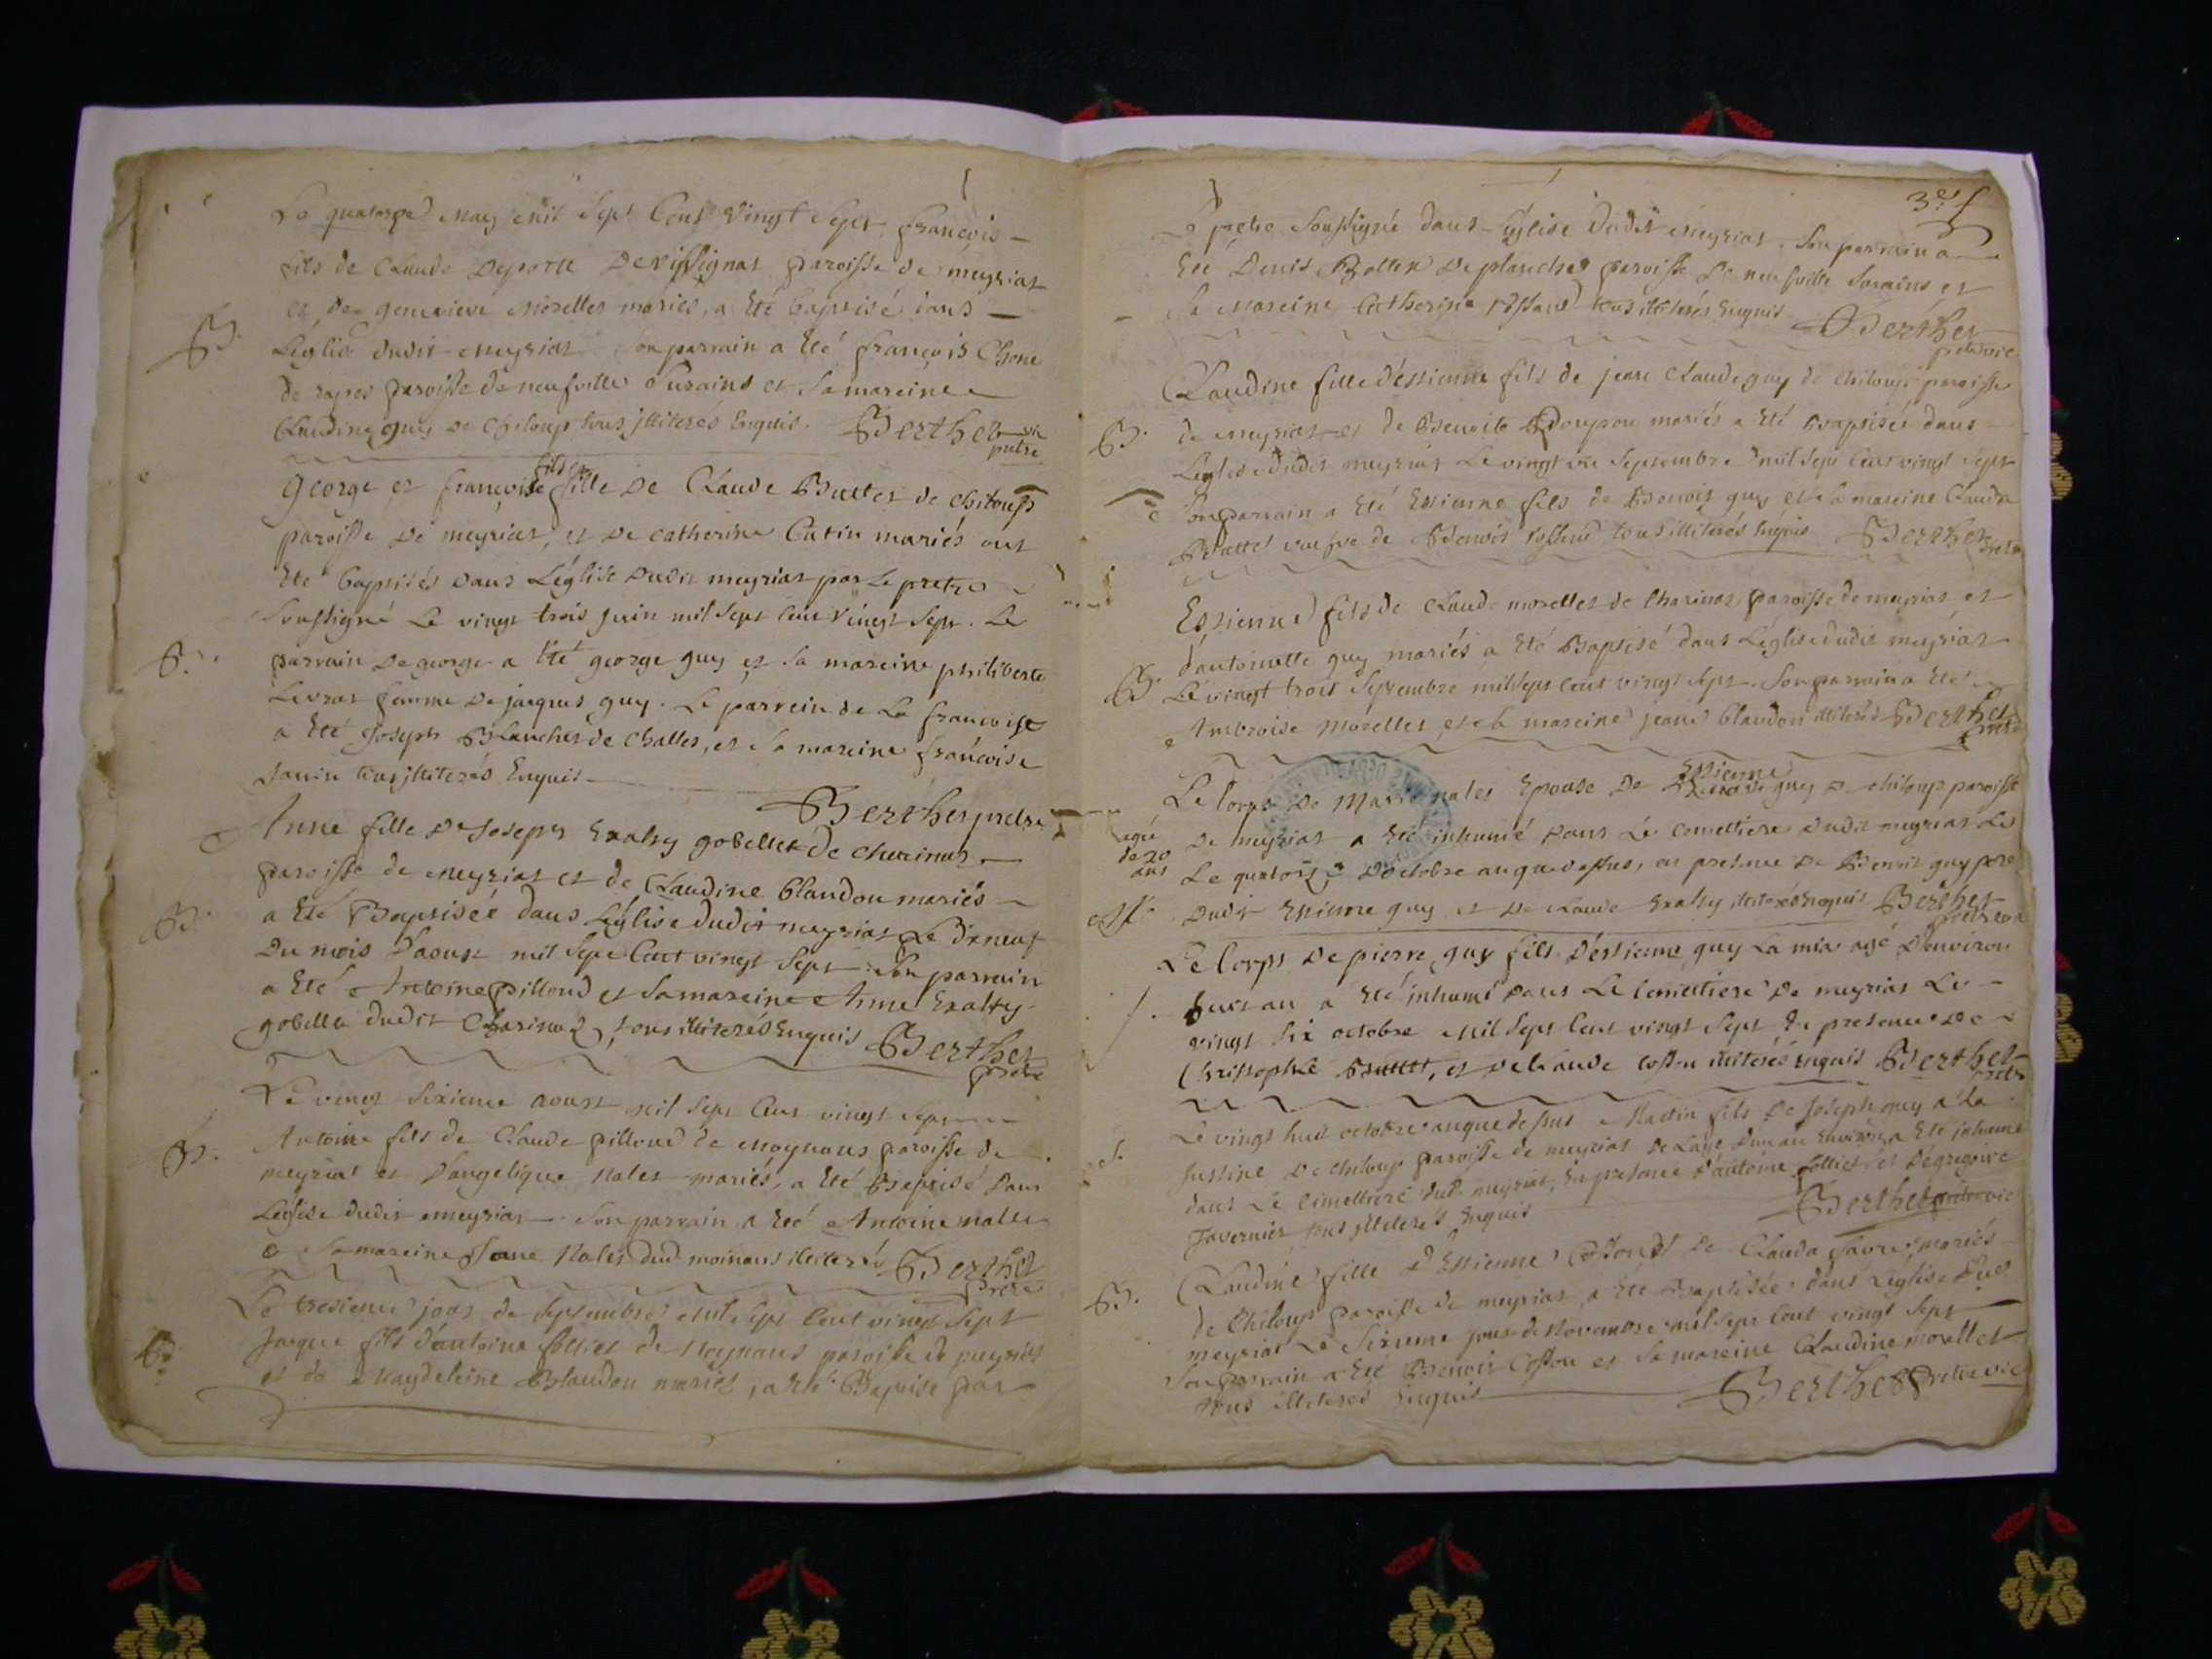 Le quatorze may mil sept Cent Vingt Sept françois
fils de Claude Deporte De vissignat paroisse de meyriat
et de genevieve morellet mariés, a Eté baptisé dans
Léglise dudit meyriat son parrain a Eté françois Chone
de rapes paroisse de neufville Surains et Sa mareine
Claudine guy De Chiloup tous illiterés Enquis. Berthet vic
pretre
fils et
George et françoise fille De Claude Buttet de Chiloup
paroisse De meyriat, et De catherine Catin mariés ont
Eté baptisés dans Léglise Dudit meyriat par Le pretre
Soussigné Le vingt trois Juin mil Sept Cent Vingt Sept. Le
B.
parrain De george a Eté george guy et Sa mareine philiberte
Levrat femme De jacques guy. Le parrein de La françoise
a Eté Joseph Blanchet de Challes, et Sa mareine françoise
Janin tous illiterés Enquis
Berthet pretre
Anne fille De Joseph Exalty gobellet de Charinas
paroisse de meyriat et de Claudine Blandon mariés
B.
a Eté Baptisée dans Léglise dudit meyriat Le Dixneuf
Du mois D'aoust mil Sept Cent vingt Sept Son parrain
a Eté Antoine pilloud et Sa mareine Anne Exalty
gobellet dudit Charinas, tous illiterés Enquis Berthet
pretre
Le vingt Sixieme aoust mil Sept Cent vingt sept
B.
Antoine fils de Claude pilloud de moynans paroisse de
meyriat et D'angelique Nalet mariés, a Eté Baptisé Dans
Léglise dudit meyriat Son parrain a Eté Antoine nallet
& Sa mareine Jane Nalet dud moinans illiterés Berthet
pretre
Le tresieme jour de Septembre mil Sept Cent vingt Sept
Jacque fils d'antoine folliet de Moynans paroisse de meyriat
et de Magdeleine Blandon mariés, a Eté Baptisé par
3e
Le pretre Soussigné dans Léglise dudit meyriat. Son parrain a
Eté Denis Bollet De planches paroisse De neufville Surains et
Sa Mareine Catherine tous illiterés Enquis Berthet
pretre vic
Claudine fille d'estienne fils de jean Claude guy de Chiloup paroisse
B.
de meyriat et de Benoite mariés a Eté Baptisée dans
Léglise Dudit meyriat Le vingt un Septembre mil Sept Cent vingt Sept
Son parrain a Eté Estienne fils de Benoit guy et Sa mareine Clauda
veufve de Benoit tous illiterés Enquis Berthet
pretre
Estienne fils de Claude morellet de Charinas paroisse de meyriat et
d'antoinette guy mariés a Eté Baptisé dans Léglise dudit meyriat
B.
Le vingt trois Septembre mil Sept Cent vingt Sept. Son parrain a Eté
Ambroise Morellet, et Sa mareine jeane blandon illiterés Berthet
pretre
Estienne
Le Corps De Marie nalet Epouse De guy De chiloup paroisse
agée
de 20
ans
De meyriat a Eté inhumé Dans Le Cimettiere dudit meyriat Le
Le quatorze D'octobre an que dessus, en presence De Benoit guy pere
dudit Estienne guy et De Claude Exalty illiterés Enquis Berthet
pretre vic
Le Corps De pierre guy fils D'estienne guy La mia agé D'environ
huit an a Eté inhumé Dans Le Cimettiere De meyriat Le
vingt Six octobre mil Sept Cent vingt Sept En presence De
Christophle Buttet, et De Claude Cosson illiterés Enquis Berthet
pretre
Le vingt huit octobre an que dessus Martin fils De Joseph guy a La
Justine De Chiloup paroisse de meyriat De Lage D'un an Environ a Eté inhumé
dans Le Cimettiere dud. meyriat, En presence D'antoine folliet et De gregoire
Tavernier tous illiterés Enquis Berthet pretre vic
Claudine fille D'Estienne Cosson et De Clauda favre mariés
B.
de Chiloup paroisse de meyriat a Eté Baptisée dans Léglise Dud.
meyriat Le Sixieme jour de Novembre mil Sept Cent vingt Sept
Son parrain a Eté Benoit Cosson et Sa mareine Claudine morellet
tous illiterés Enquis Berthet Pretre vic